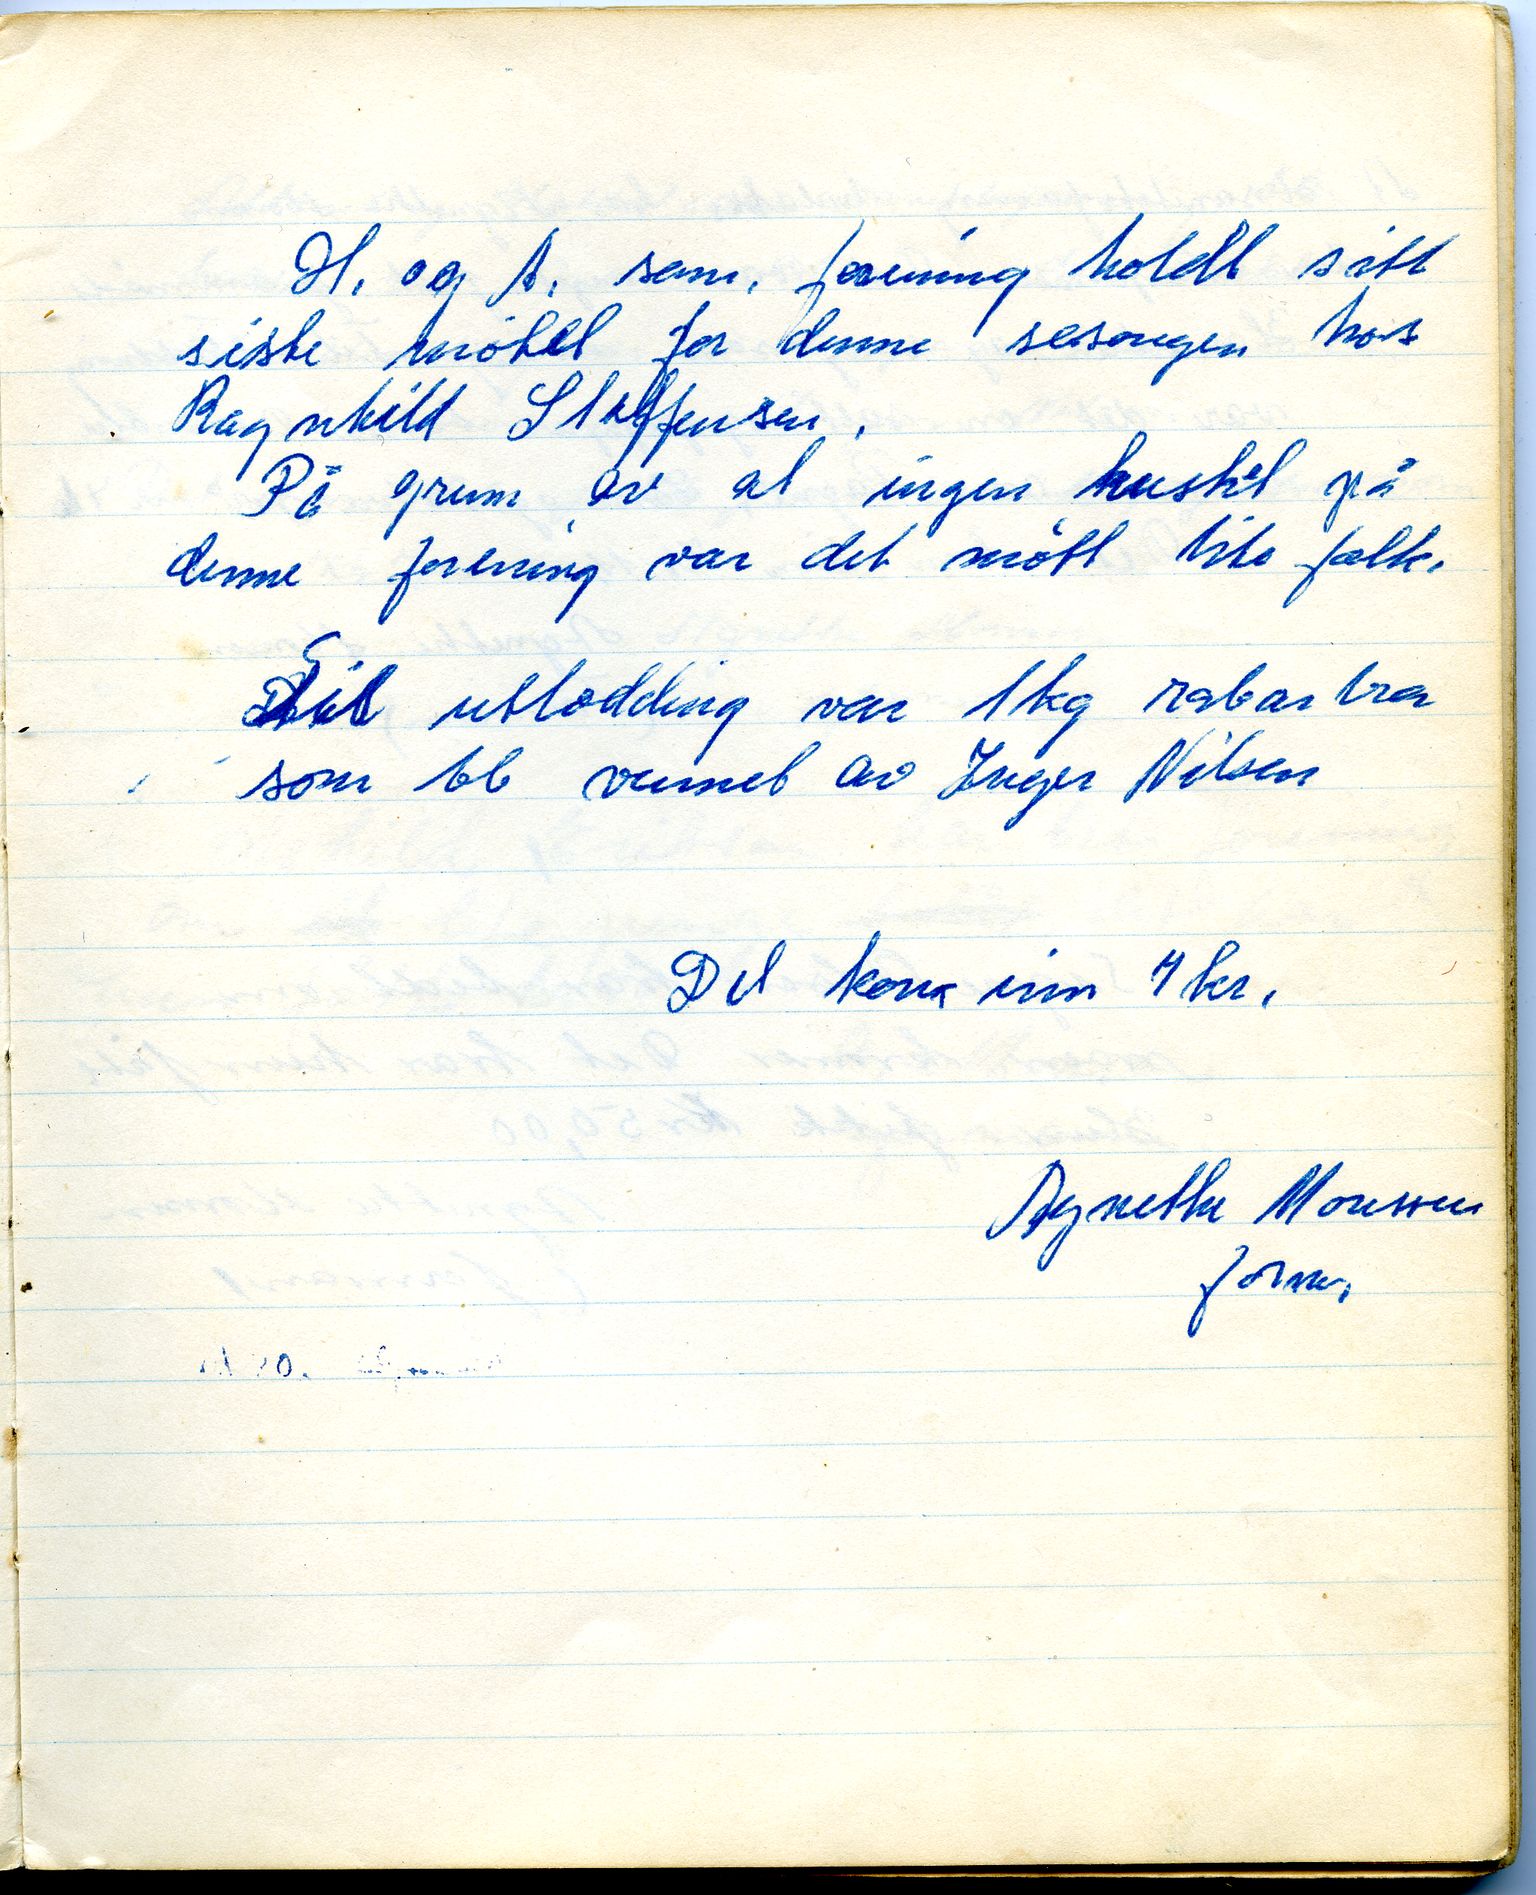 H. og A. sam. forening holdt sitt
siste möte for denne sesongen hos
Ragnhild Steffensen.
På grunn av at ingen husket på
denne forening var det mött lite folk.
Til utlodding var 1 kg rabarbra
som bb vunnet av Inger Nilsen
Det kom inn 4 kr.
Agnethe Monssen
form.